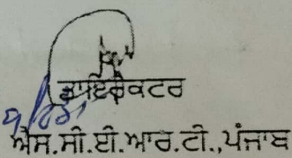 ਡਾਇਰੈਕਟਰ
ਐਸ.ਸੀ.ਈ.ਆਰ.ਟੀ.,ਪੰਜਾਬ